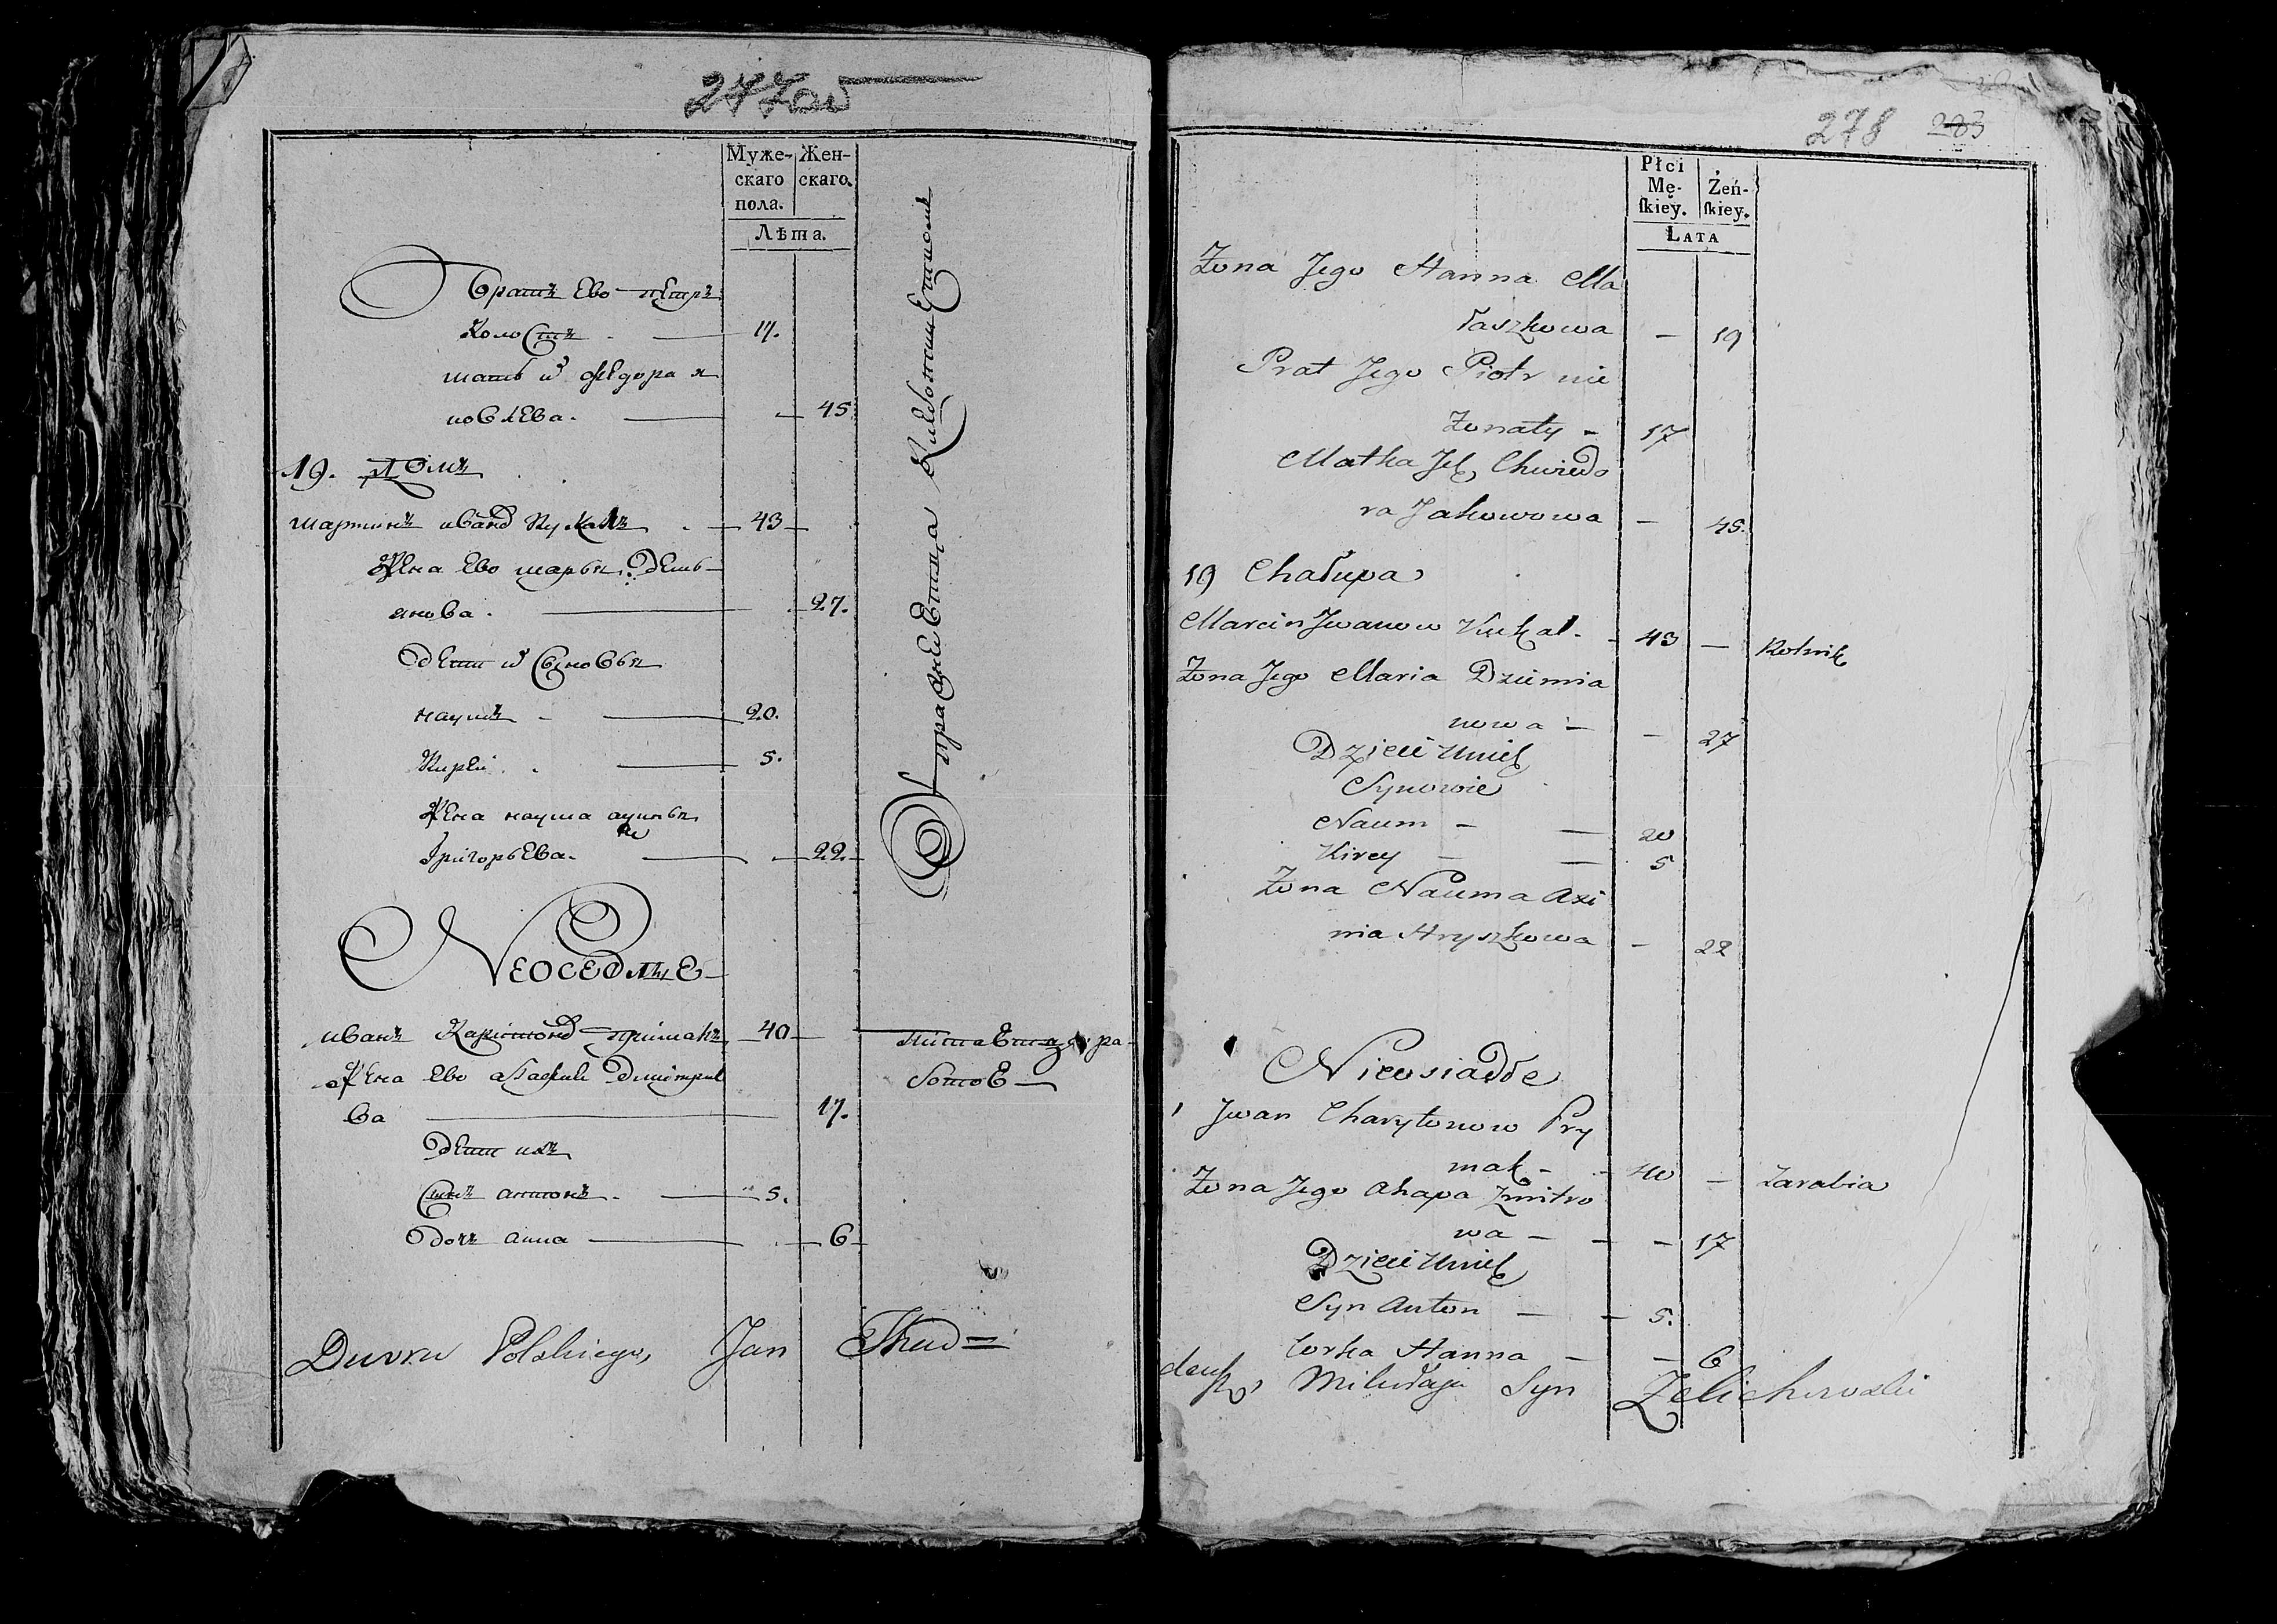 277 об
Муже-
скаго
пола.
Жен-
скаго.
Лѣта.
братъ Ево петръ
холостъ 17.
мать и͠ федора я
ковлева. 45
19. домъ
мартинъ иванов кукаль 43
жена Ево марья демь-
янова. 27.
дети и͠ сыновья
наумъ 20.
кирей 5.
жена наума аксинья
григорьева. 22
Неоседлые
иванъ харитонов примакъ 40
питаетца ра-
ботоЕ
жена Ево агафия дмитрие
ва 17.
дети ихъ
сынъ антонъ 5.
дочь анна 6
упражняетца хлебопашеством
Dworu Polskiego, Jan Thad=
278 283
Płci
Mę-
ſkiey.
Żeń-
ſkiey.
LATA
Żona Jego Hanna Ma
łaszkowa — 19
Brat Jego Piotr nie
żonaty - 17
Matka Jch Chwiedo
ra Jakowowa — 45.
19 Chałupa
Marcin Jwanow Kukal. 43 — Rolnik
Żona Jego Maria Dziemia
nowa — 27
Dzieci U nich
Synowie
Naum 20
Kirey 5
Żona Nauma Axi
nia Hryszkowa — 22
Nieosiadłe
Jwan Charytonow Pry
mak 40 — Zarabia
Żona Jego Ahapa Zmitro
wa — 17
Dzieci U nich
Syn Anton 5.
Corka Hanna — 6
Mikołaja Syn Zelichowski